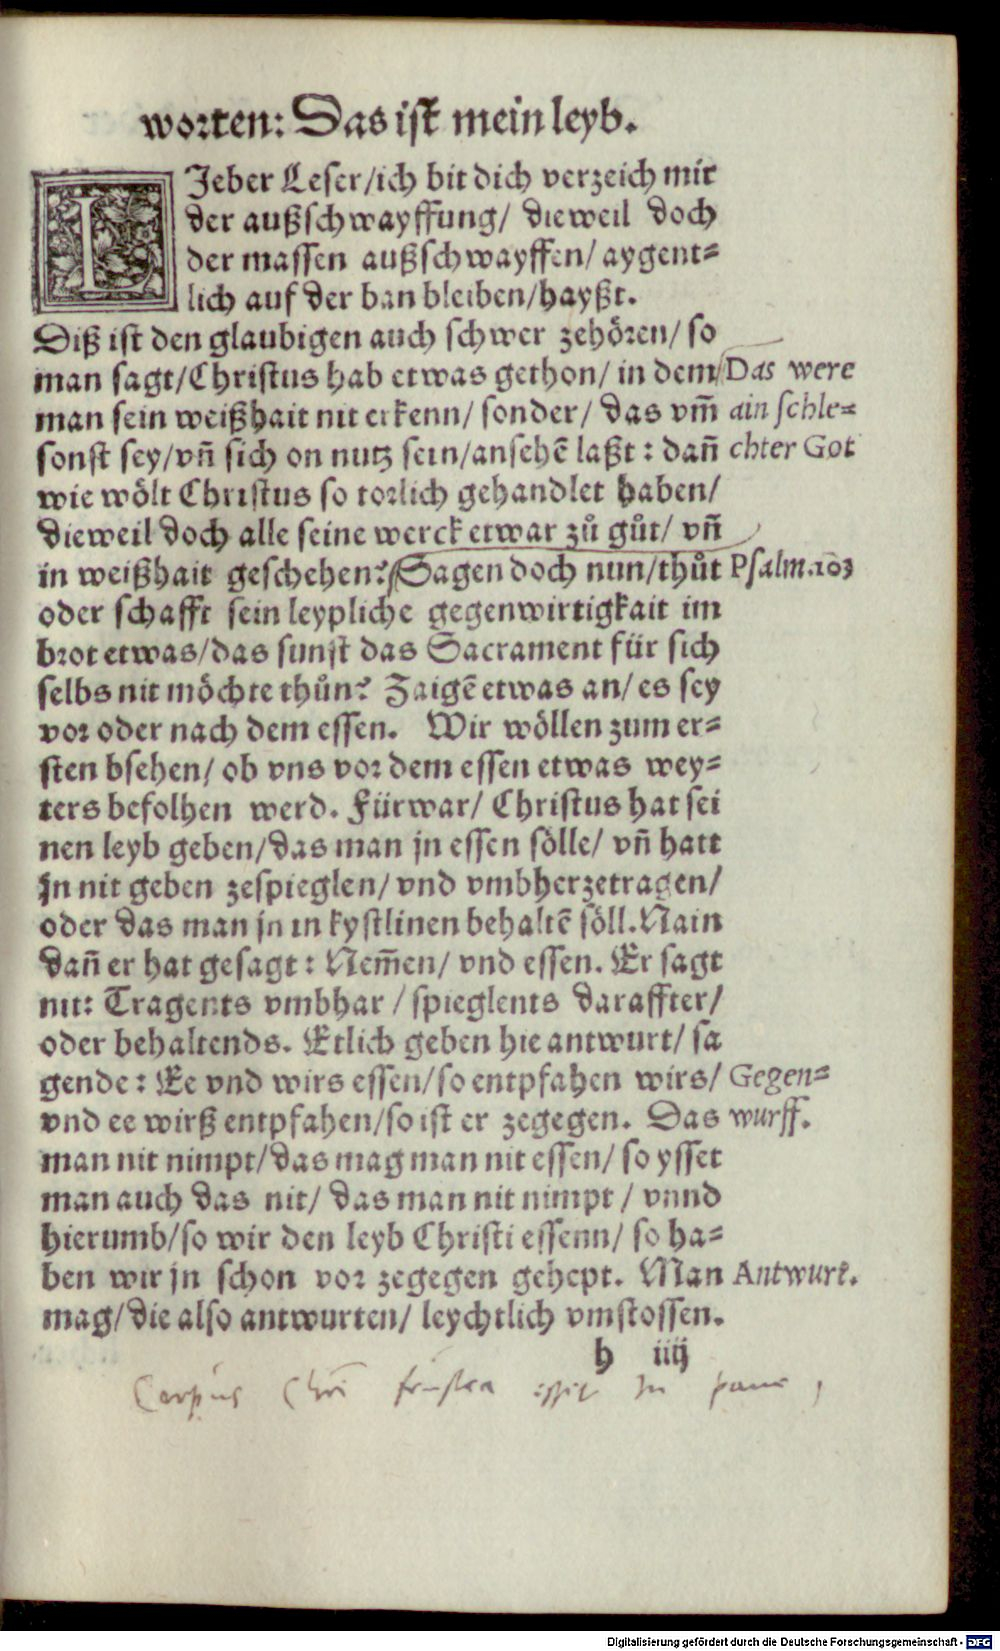 worten: Das ist mein leyb.
LJeber Leser/ich bit dich verzeich mir
der außschwayffung/ dieweil doch
der massen außschwayffen/ aygent=
lich auf der ban bleiben/hayßt.
Diß ist den glaubigen auch schwer zehören/ so
man sagt/Christus hab etwas gethon/ in dem Das were
man sein weißhait nit erkenn/ sonder/ das vm̄ ain schle=
sonst sey/vn̄ sich on nutz sein/ansehē laßt: dan̄ chter Got
wie wölt Christus so torlich gehandlet haben/
dieweil doch alle seine werck etwar zů gůt/ vn̄
in weißhait geschehen? Sagen doch nun/thůt Psalm.103
oder schafft sein leypliche gegenwirtigkait im
brot etwas/das sunst das Sacrament für sich
selbs nit möchte thůn? Zaigē etwas an/ es sey
vor oder nach dem essen. Wir wöllen zum er=
sten bsehen/ ob vns vor dem essen etwas wey=
ters befolhen werd. Fürwar/ Christus hat sei
nen leyb geben/das man jn essen sölle/ vn̄ hatt
jn nit geben zespieglen/ vnd vmbherzetragen/
oder das man jn in kystlinen behaltē söll. Nain
dan̄ er hat gesagt: Nem̄en/ vnd essen. Er sagt
nit: Tragents vmbhar / spieglents daraffter/
oder behaltends. Etlich geben hie antwurt/ sa
gende: Ee vnd wirs essen/so entpfahen wirs/ Gegen=
vnd ee wirß entpfahen/so ist er zegegen. Das wurff.
man nit nimpt/das mag man nit essen/ so ysset
man auch das nit/ das man nit nimpt / vnnd
hierumb/so wir den leyb Christi essenn/ so ha=
ben wir jn schon vor zegegen gehept. Man Antwurt.
mag/die also antwurten/ leychtlich vmstossen.
h iiij
Corpus Chri frustra esset in pane,
Digitalisierung gefördert durch die Deutsche Forschungsgemeinschaft - DFG